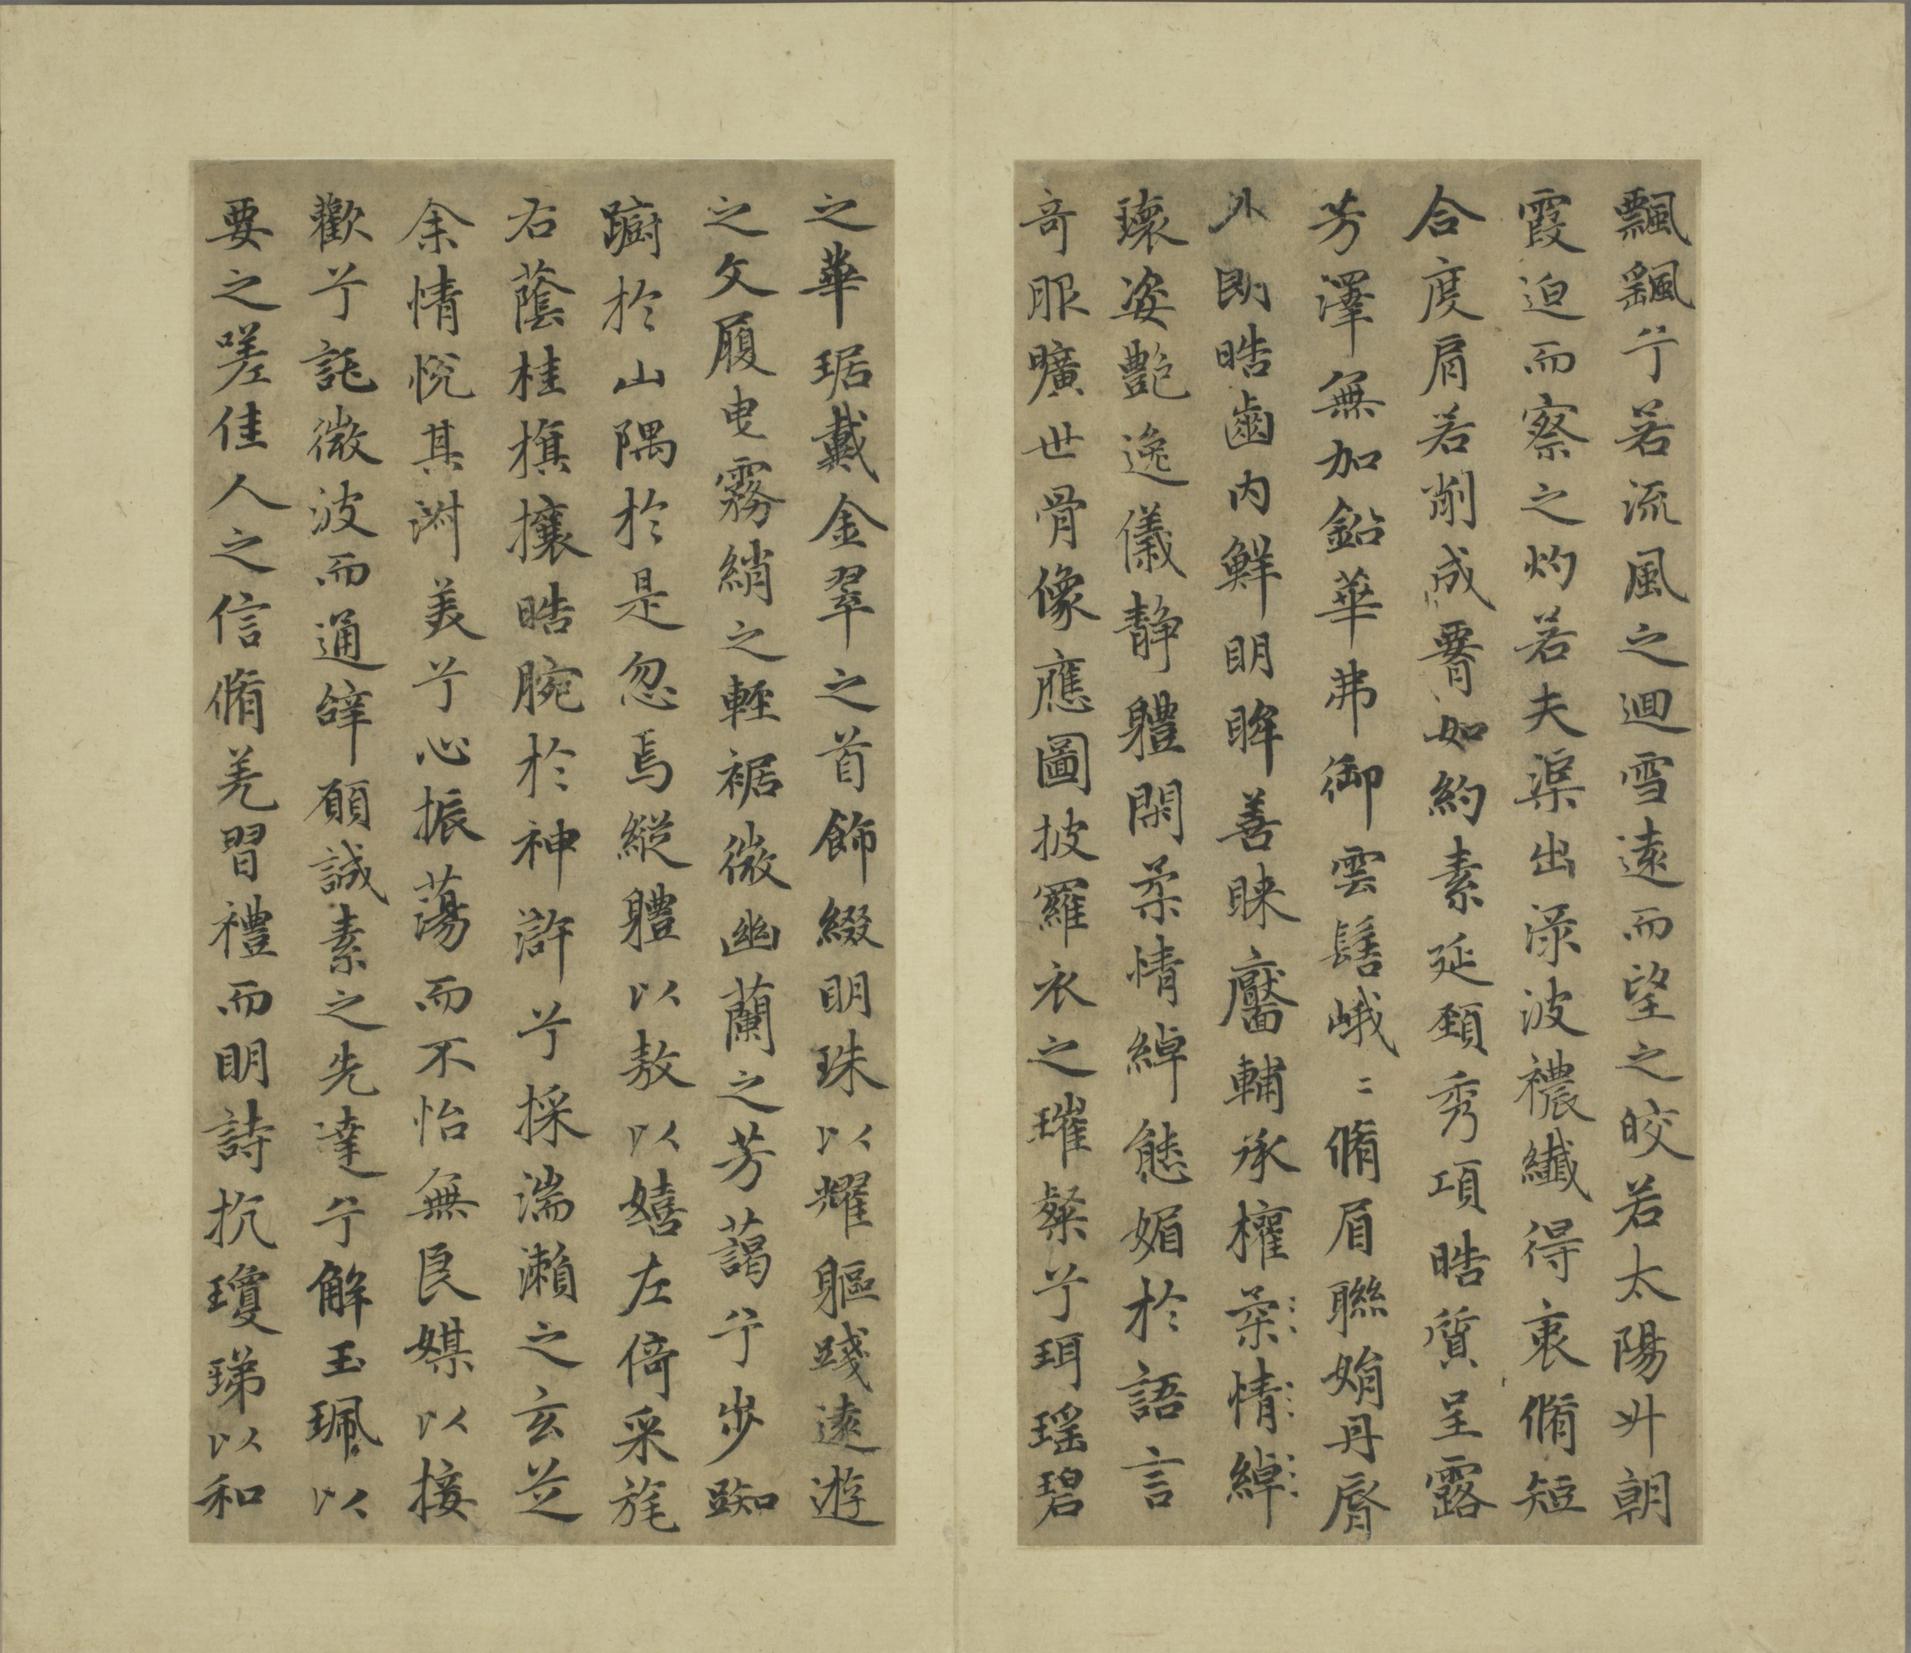 飄飖兮若流風之迴雪遠而望之皎若太陽升朝
霞迫而察之灼若夫渠出渌波襛纖得衷脩短
合度肩若削成腰如約素延頸秀項皓質呈露
芳澤無加鉛華弗御雲髻峨〻脩眉聯娟丹脣
外朗皓齒内鮮明眸善睞靨輔承權柔情綽
瓌姿艷逸儀静體閑柔情綽態媚於語言
奇服曠世骨像應圖披羅衣之璀粲兮珥瑶碧
之華琚戴金翠之首飾綴明珠以耀軀踐遠遊
之文履曳霧綃之輕裾微幽蘭之芳藹兮步踟
躕於山隅於是忽焉縱體以敖以嬉左倚采旄
右蔭桂旗攘皓腕於神滸兮採湍瀨之玄芝
余情悅其淑美兮心振蕩而不怡無良媒以接
歡兮託微波而通辭願誠素之先達兮解玉珮以
要之嗟佳人之信脩羌習禮而明詩抗瓊珶以和